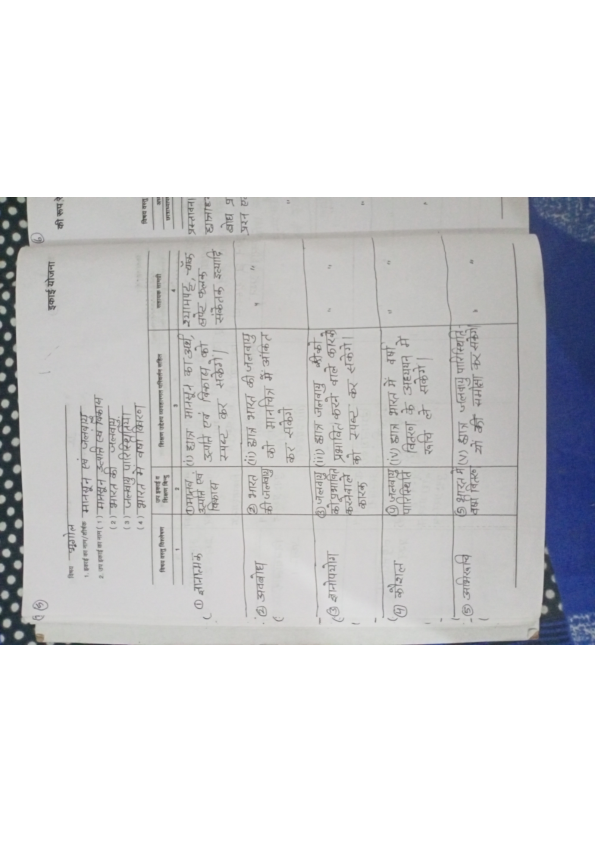 इकाई योजना
विषय भूगोल
1. इकाई का नाम/शीर्षक मानसून एवं जलवायु
2. उप इकाई का नाम (1) मानसून उत्पत्ति एवं विकास
(2) भारत की जलवायु
(3) जलवायु पारिस्थितियां
(4) भारत में वर्षा वितरण
विषय वस्तु विश्लेषण
उप इकाई व शिक्षण बिन्दु
1 2 3 4
① ज्ञानात्मक
① मानसून उत्पत्ति एवं विकास
(i) छात्र मानसून का अर्थ,
उत्पत्ति एवं विकास को
स्पष्ट कर सकेंगे।
श्यामपट्ट, चॉक
लपेट फलक
संकेतक इत्यादि
② अवबोध
② भारत
की जलवायु
(ii) छात्र भारत की जलवायु
को मानचित्र में अंकित
कर सकेंगे
" "
③ ज्ञानोपयोग
③ जलवायु
को प्रभावित
करनेवाले
कारक
(iii) छात्र जलवायु को
प्रभावित करने वाले कारक
को स्पष्ट कर सकेंगे।
"
④ कौशल
जलवायु
पारिस्थिति
(iv) छात्र भारत में वर्षा
वितरण के अध्ययन में
रूचि ले सकेंगे।
"
⑤ अभिरूचि
⑤ भारत में
वर्षा वितरण
(v) छात्र जलवायु पारिस्थिति
यों की समीक्षा कर सकेंगे
"
की रूप रे
विषय वस्तु
प्रस्तावना
छात्राध्य
बोध प्र
प्रश्न
"
"